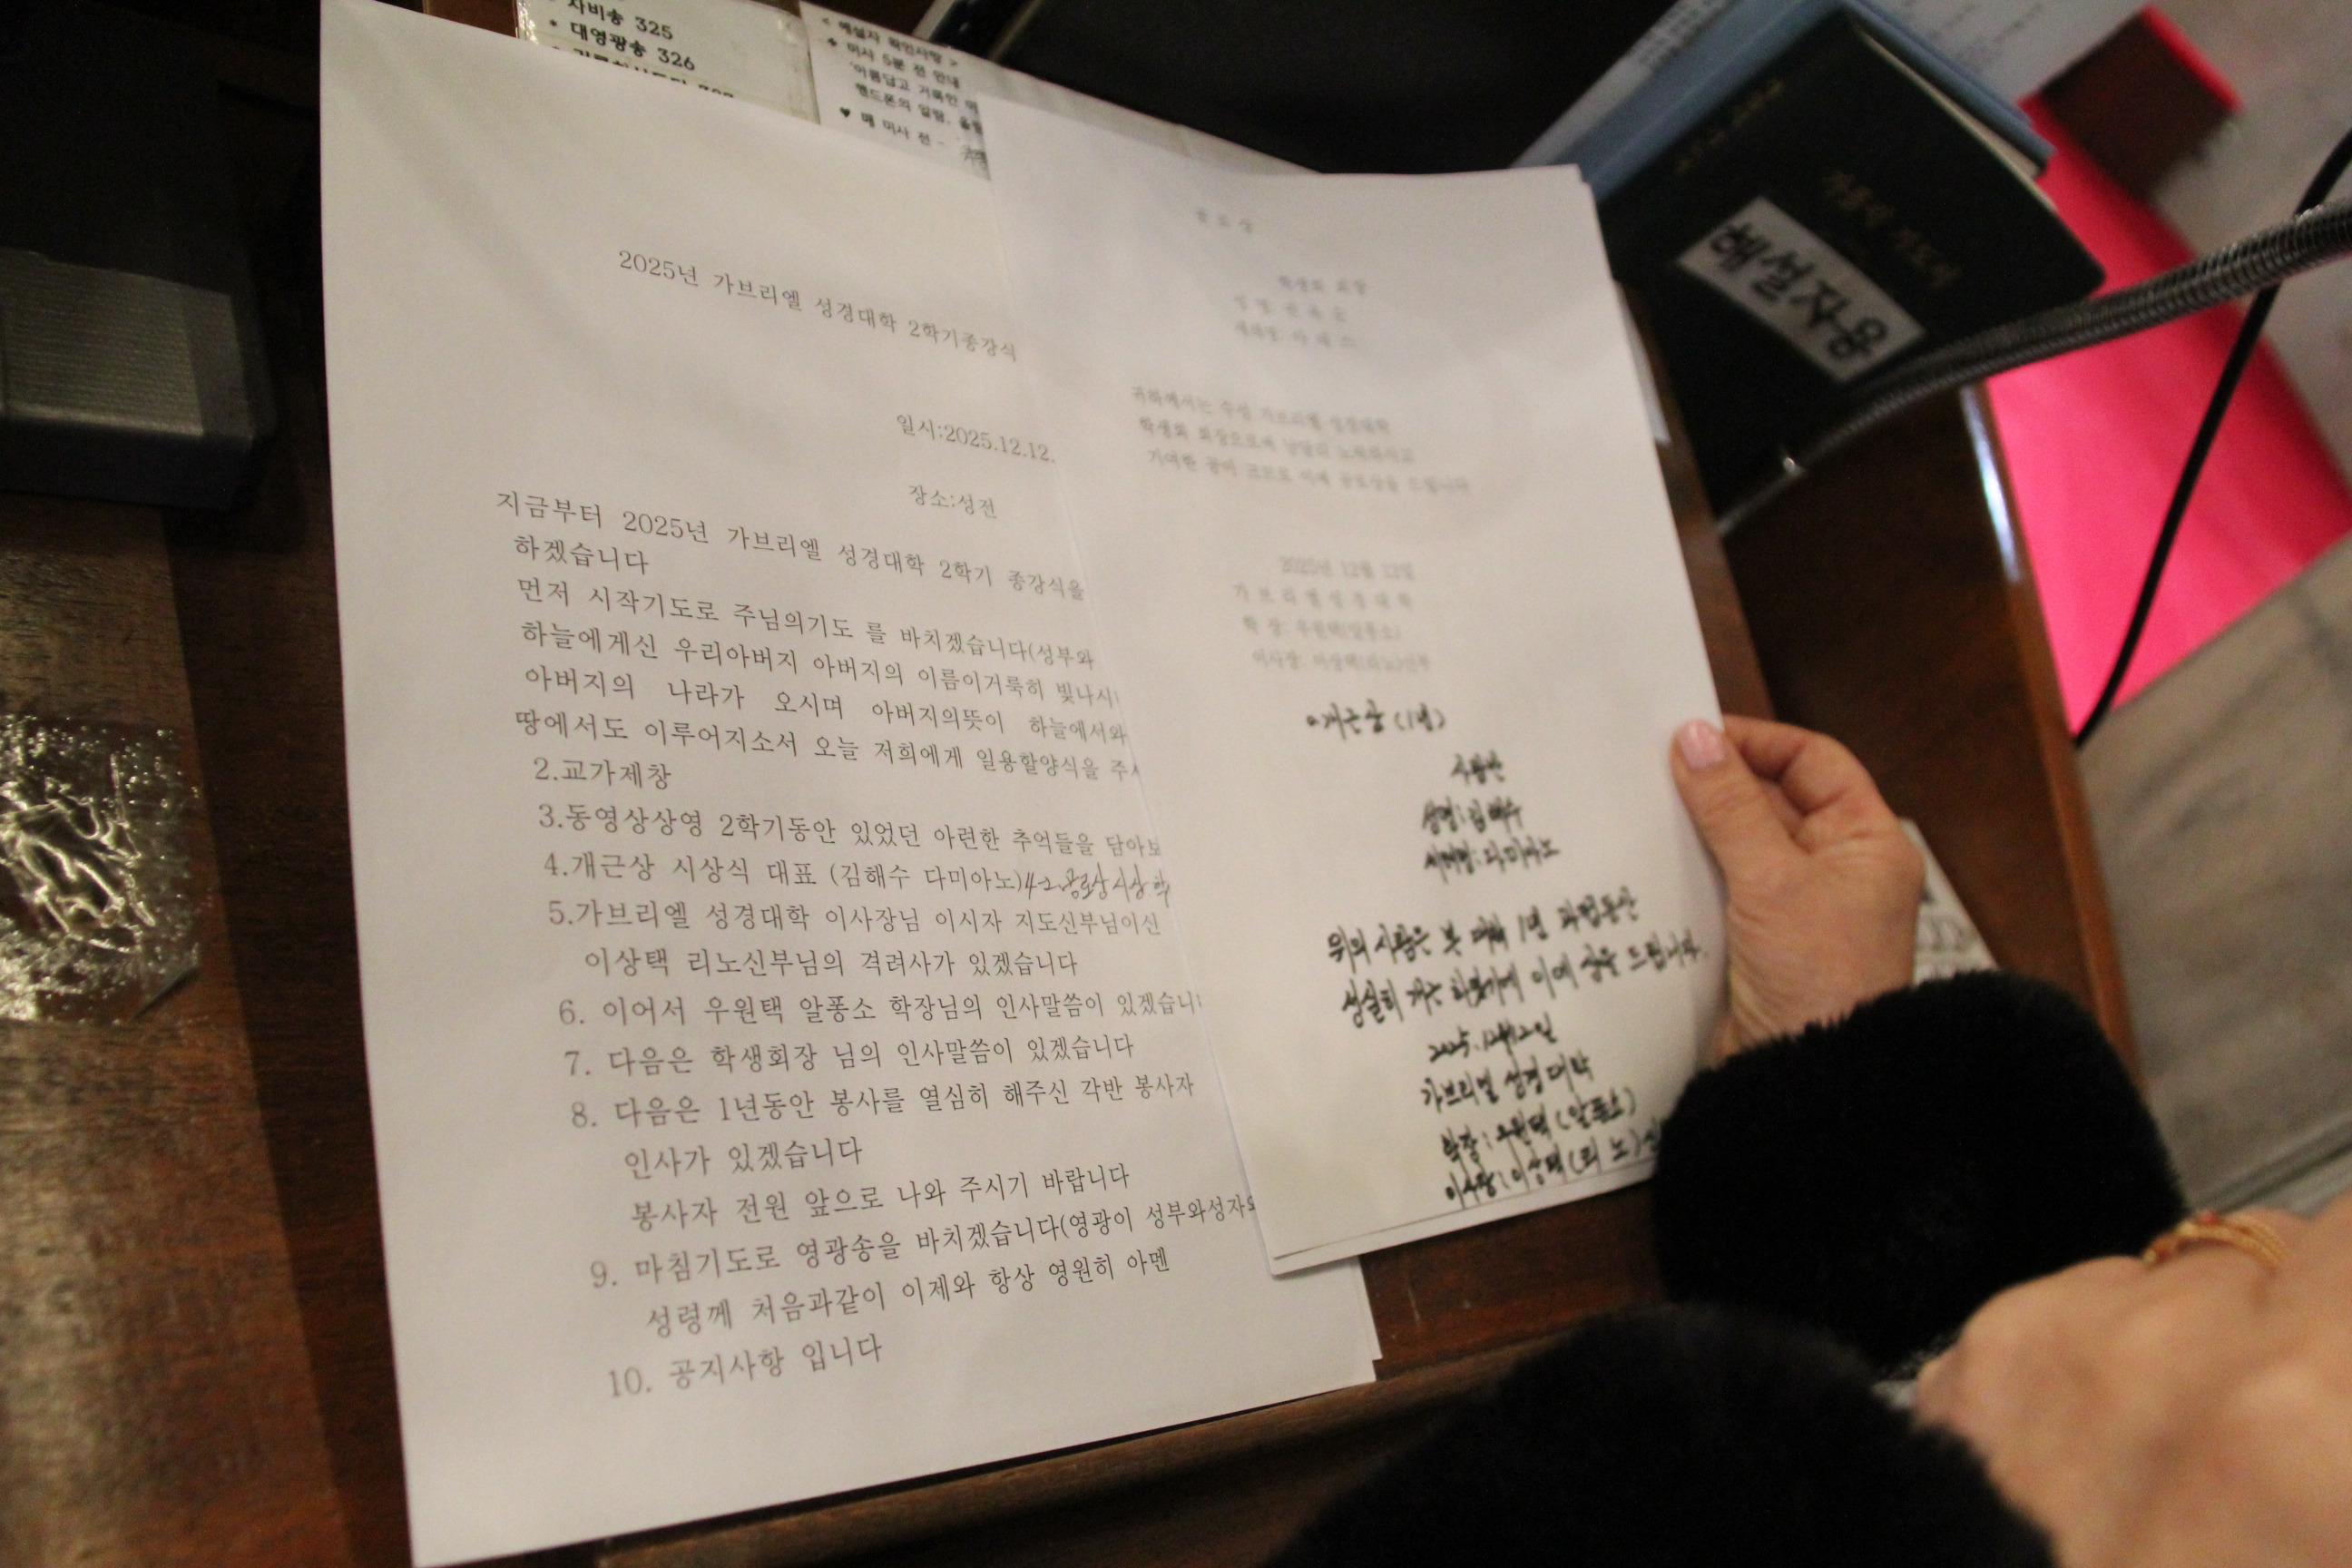 자비송 325
• 대영광송 326
< 해설자 확인사항 >
미사 5분 전 안내
아름답고 거룩한 미
핸드폰의 알람,
♥ 매 미사 전 -
가톨릭 기도서
해설자용
2025년 가브리엘 성경대학 2학기종강식
일시:2025.12.12.
장소:성전
지금부터 2025년 가브리엘 성경대학 2학기 종강식을
하겠습니다
먼저 시작기도로 주님의기도 를 바치겠습니다(성부와
하늘에게신 우리아버지 아버지의 이름이거룩히 빛나시
아버지의 나라가 오시며 아버지의뜻이 하늘에서와
땅에서도 이루어지소서 오늘 저희에게 일용할양식을 주
2.교가제창
3.동영상상영 2학기동안 있었던 아련한 추억들을 담아보
4.개근상 시상식 대표 (김해수 다미아노)4-2.공로상시상 학
5.가브리엘 성경대학 이사장님 이시자 지도신부님이신
이상택 리노신부님의 격려사가 있겠습니다
6. 이어서 우원택 알퐁소 학장님의 인사말씀이 있겠습니
7. 다음은 학생회장 님의 인사말씀이 있겠습니다
8. 다음은 1년동안 봉사를 열심히 해주신 각반 봉사자
인사가 있겠습니다
봉사자 전원 앞으로 나와 주시기 바랍니다
9. 마침기도로 영광송을 바치겠습니다(영광이 성부와성자와
성령께 처음과같이 이제와 항상 영원히 아멘
10. 공지사항 입니다
공로상
학생회 회장
귀하께서는 수성 가브리엘 성경대학
학생회 회장으로써 남달리 노력하시고
기여한 공이 크므로 이에 공로상을 드립니다
2025년 12월 12일
가브리엘성경대학
학 장: 우원택(알퐁소)
이사장: 이상택(리노)신부
개근상 (1년)
성명: 김해수
세례명: 다미아노
위의 사람은 본 대학 1년 과정동안
성실히 개근 하였기에 이에 상을 드립니다.
2025.12월12일
가브리엘 성경대학
학장: 우원택(알퐁소)
이사장: 이상택(리노)신